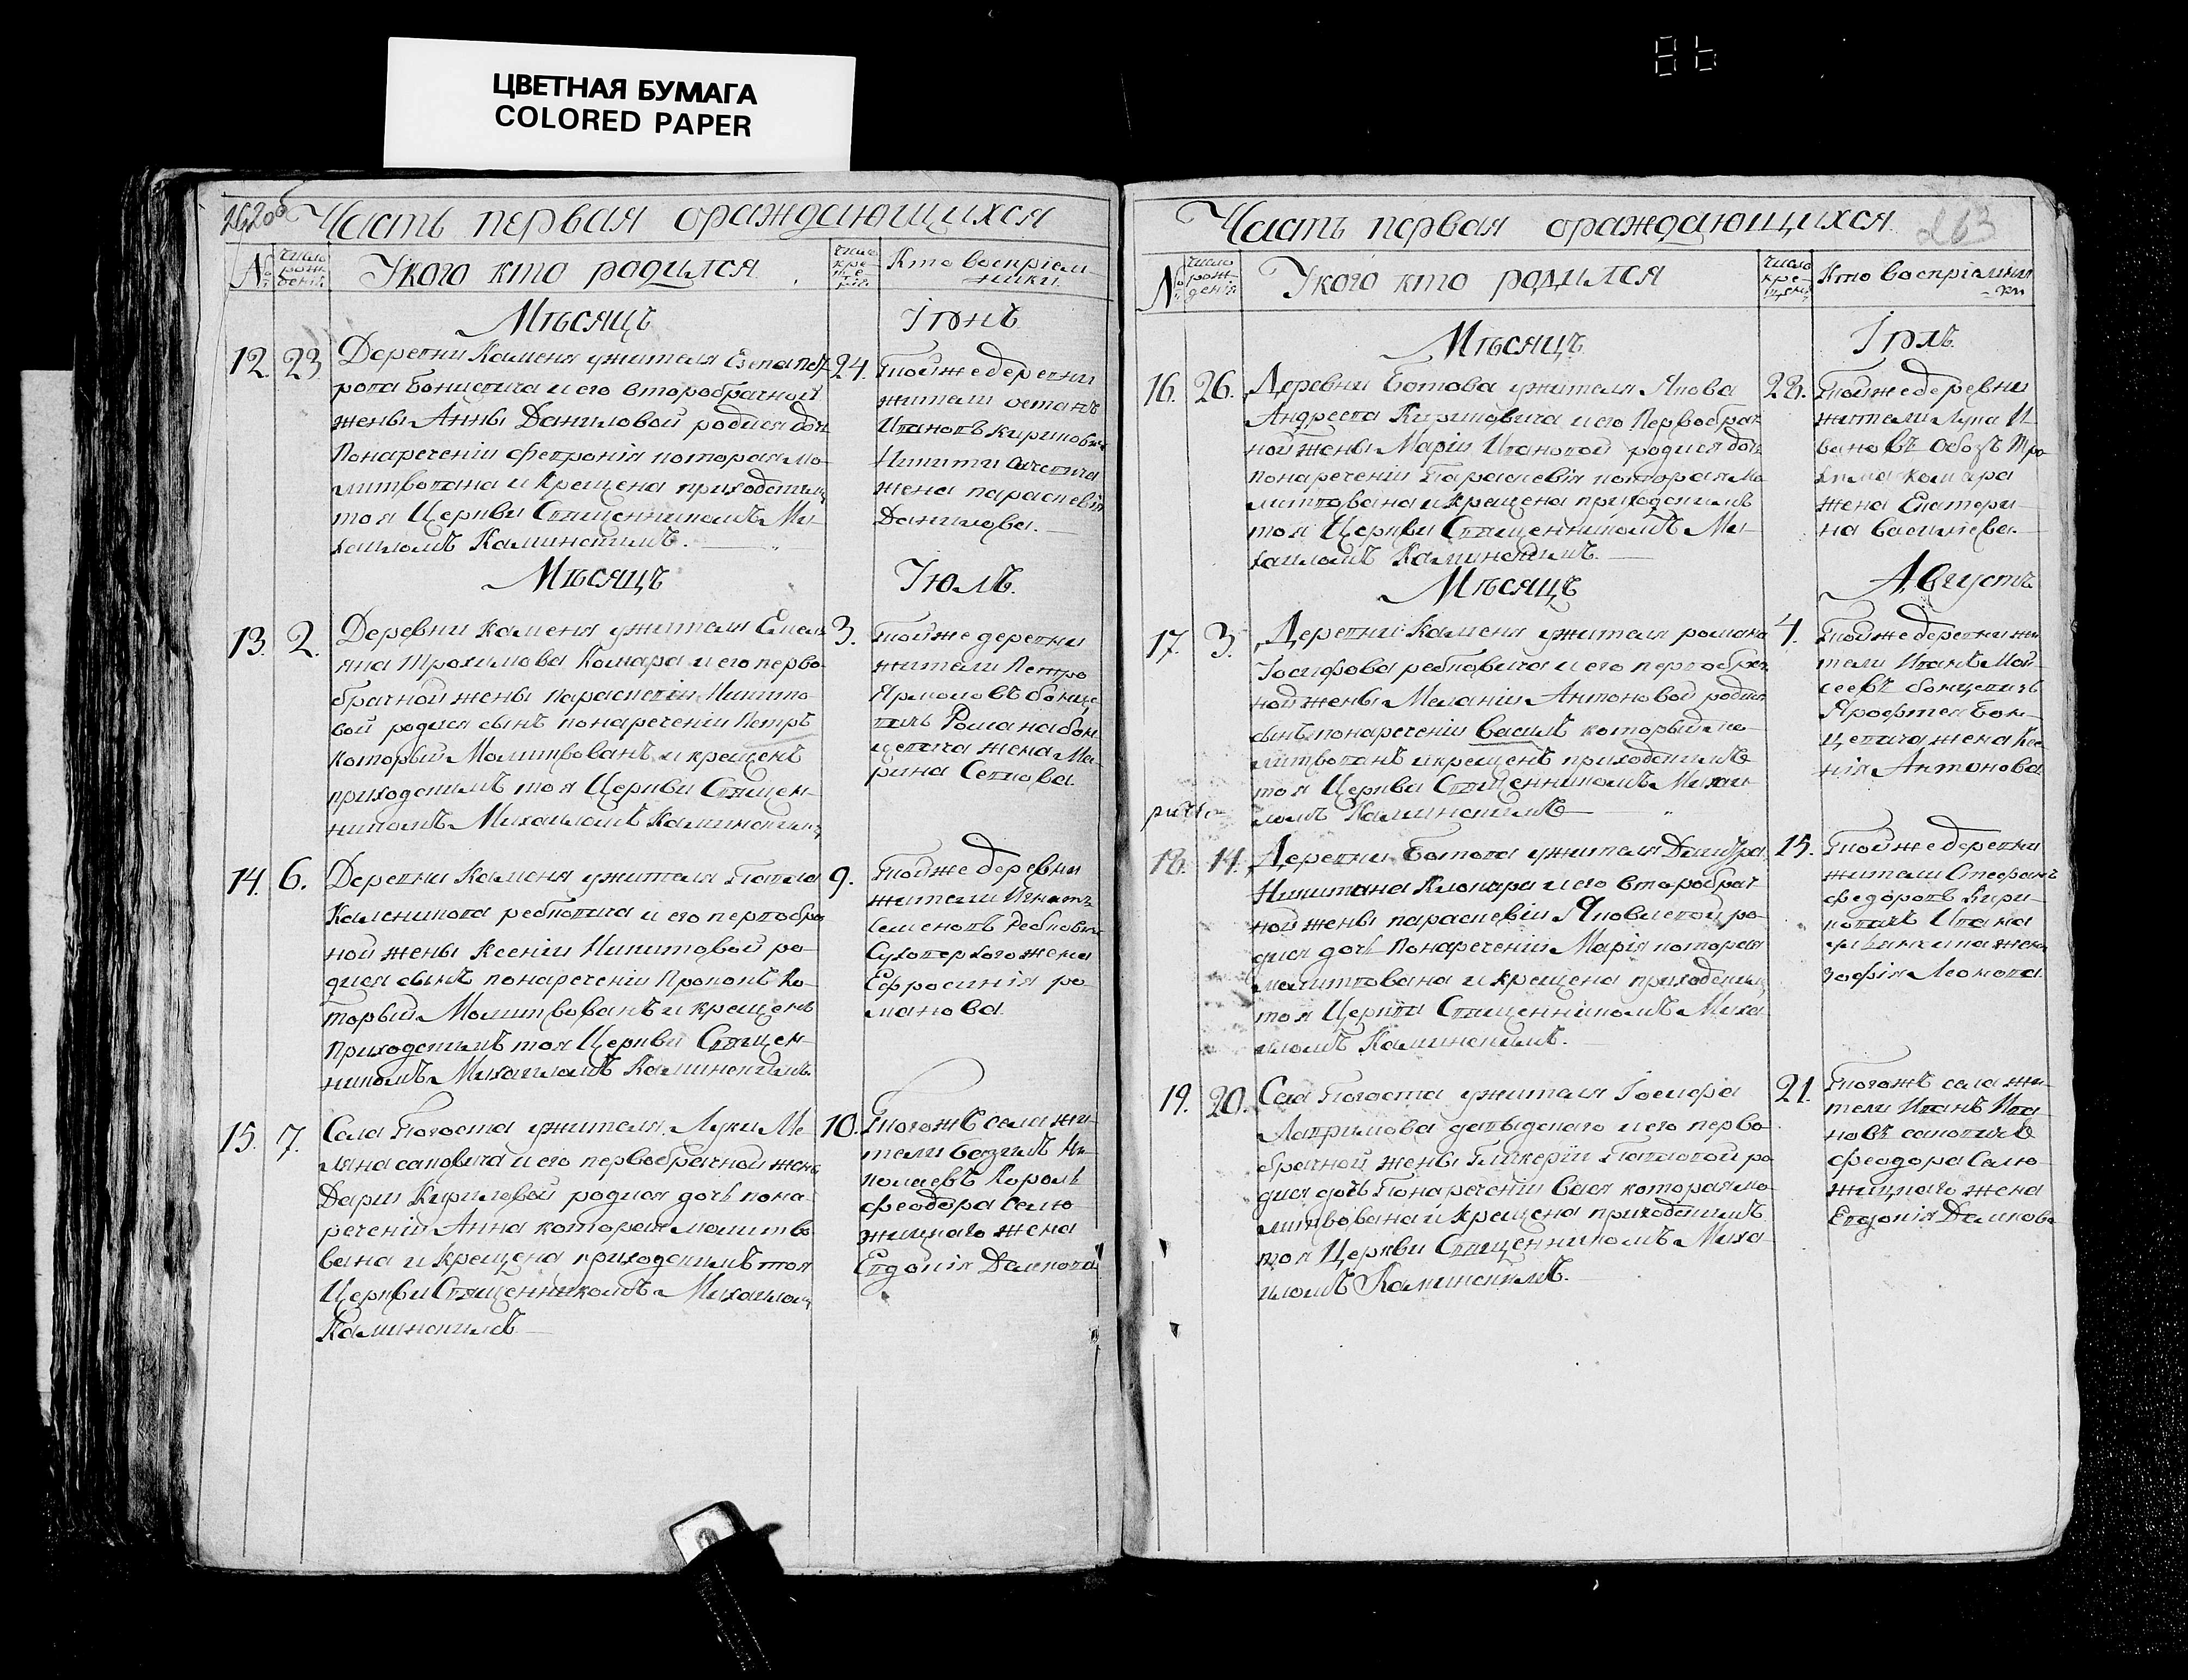 ЦВЕТНАЯ БУМАГА
COLORED PAPER
262 об
Часть первая ораждающихся
№
число рождения
Укого кто родился
число крещения
Кто воспріемники
Мѣсяцъ Іюнь
12. 23.
Деревни Каменя ужителя
рова Бонцевича и его второбрачной
жены Анны Даниловой родися дочь
понареченіи Феѵронія которая мо-
литвована и крещена приходскимъ
тоя Церкви Священникомъ Ми-
хаиломъ Каминскимъ.
24.
Тойже деревни
жители
Ивановъ Кириковичъ
Никити
жена Параскевія
Данилова.
Мѣсяцъ Іюль.
13. 2.
Деревни Каменя ужителя Емель
яна Трохимова Комара и его перво-
брачной жены Параскевіи Никито-
вой родися сынъ понареченіи Петръ
который Молитвованъ и крещенъ
приходскимъ тоя Церкви Священ-
никомъ Михаиломъ Каминскимъ
3.
Тойже деревни
жители Петро
Ярмоловъ Бонце-
вичъ Романа Бон-
цевича жена Ма-
рина
14. 6.
Деревни Каменя ужителя Павла
Каленикова Ребковича и его первобрач
ной жены Ксеніи Никитовой ро-
дися сынъ понареченіи Прокопъ ко-
торый Молитвованъ и крещенъ
Приходскимъ тоя Церкви Священ-
никомъ Михаиломъ Каминскимъ.
9.
Тойже деревни
жители Игнатъ
Семеновъ Ребковичъ
жена
Ефросинія Ро-
манова.
15. 7.
Села Погоста ужителя Луки
вича и его первобрачной жены
Дарии Кириловой родися дочь пона-
реченіи Анна которая молитво-
вана и крещена приходскимъ тоя
Церкви Священникомъ Михаиломъ
Каминскимъ
10.
Тогожъ села жи-
тели Ни-
колаевъ Король
Феодора Селю-
жицкаго жена
Евдокія
Часть первая ораждающихся
263
№
число рождения
Укого кто родился
число крещения
Кто воспріемники
Мѣсяцъ Іюль.
16. 26.
Деревни Ботова ужителя Якова
Андреева Кириковича и его Первобрач
ной жены Маріи Ивановой родися дочь
понареченіи Параскевія которая мо-
литвована и крещена приходскимъ
тоя Церкви Священникомъ Ми-
хаиломъ Каминскимъ.
28.
Тойже деревни
жители Лука И-
вановъ Тро-
хима Комара
жена Екатери-
на Василева.
Мѣсяцъ Августъ
17. 3.
Деревни Каменя ужителя Романа
Іосифова Ребковича и его первобрач
ной жены Меланіи Антоновой родися
сынъ понареченіи Василъ который мо-
литвованъ и крещенъ приходскимъ
тоя Церкви Священникомъ Михаи-
ломъ Каминскимъ
4.
Тойже деревни жи-
тели Иванъ Мои-
сеевъ Бонцевичъ
Бон-
цевича жена Ксе-
нія Антонова
18. 14.
Деревни Ботова ужителя Димитра
Никитина Комара и его второбрач-
ной жены Параскевіи Яковлевой ро-
дися дочь Понареченіи Марія которая
молитвована и крещена приходскимъ
тоя Церкви Священникомъ Миха-
иломъ Каминскимъ.
15.
Тойже деревни
жители Стефанъ
Федоровъ Кири-
ковичъ Ивана
жена
Зофія Леонова.
19. 20.
Села Погоста ужителя
и его перво-
брачной жены Гликеріи Павловой ро-
дися дочь Понареченіи Васа которая мо-
литвована и крещена приходскимъ
тоя Церкви Священникомъ Миха-
иломъ Каминскимъ.
21.
Тогожъ села жи-
тели Иванъ Ива-
новъ
Феодора Селю-
жицкаго жена
Евдокія